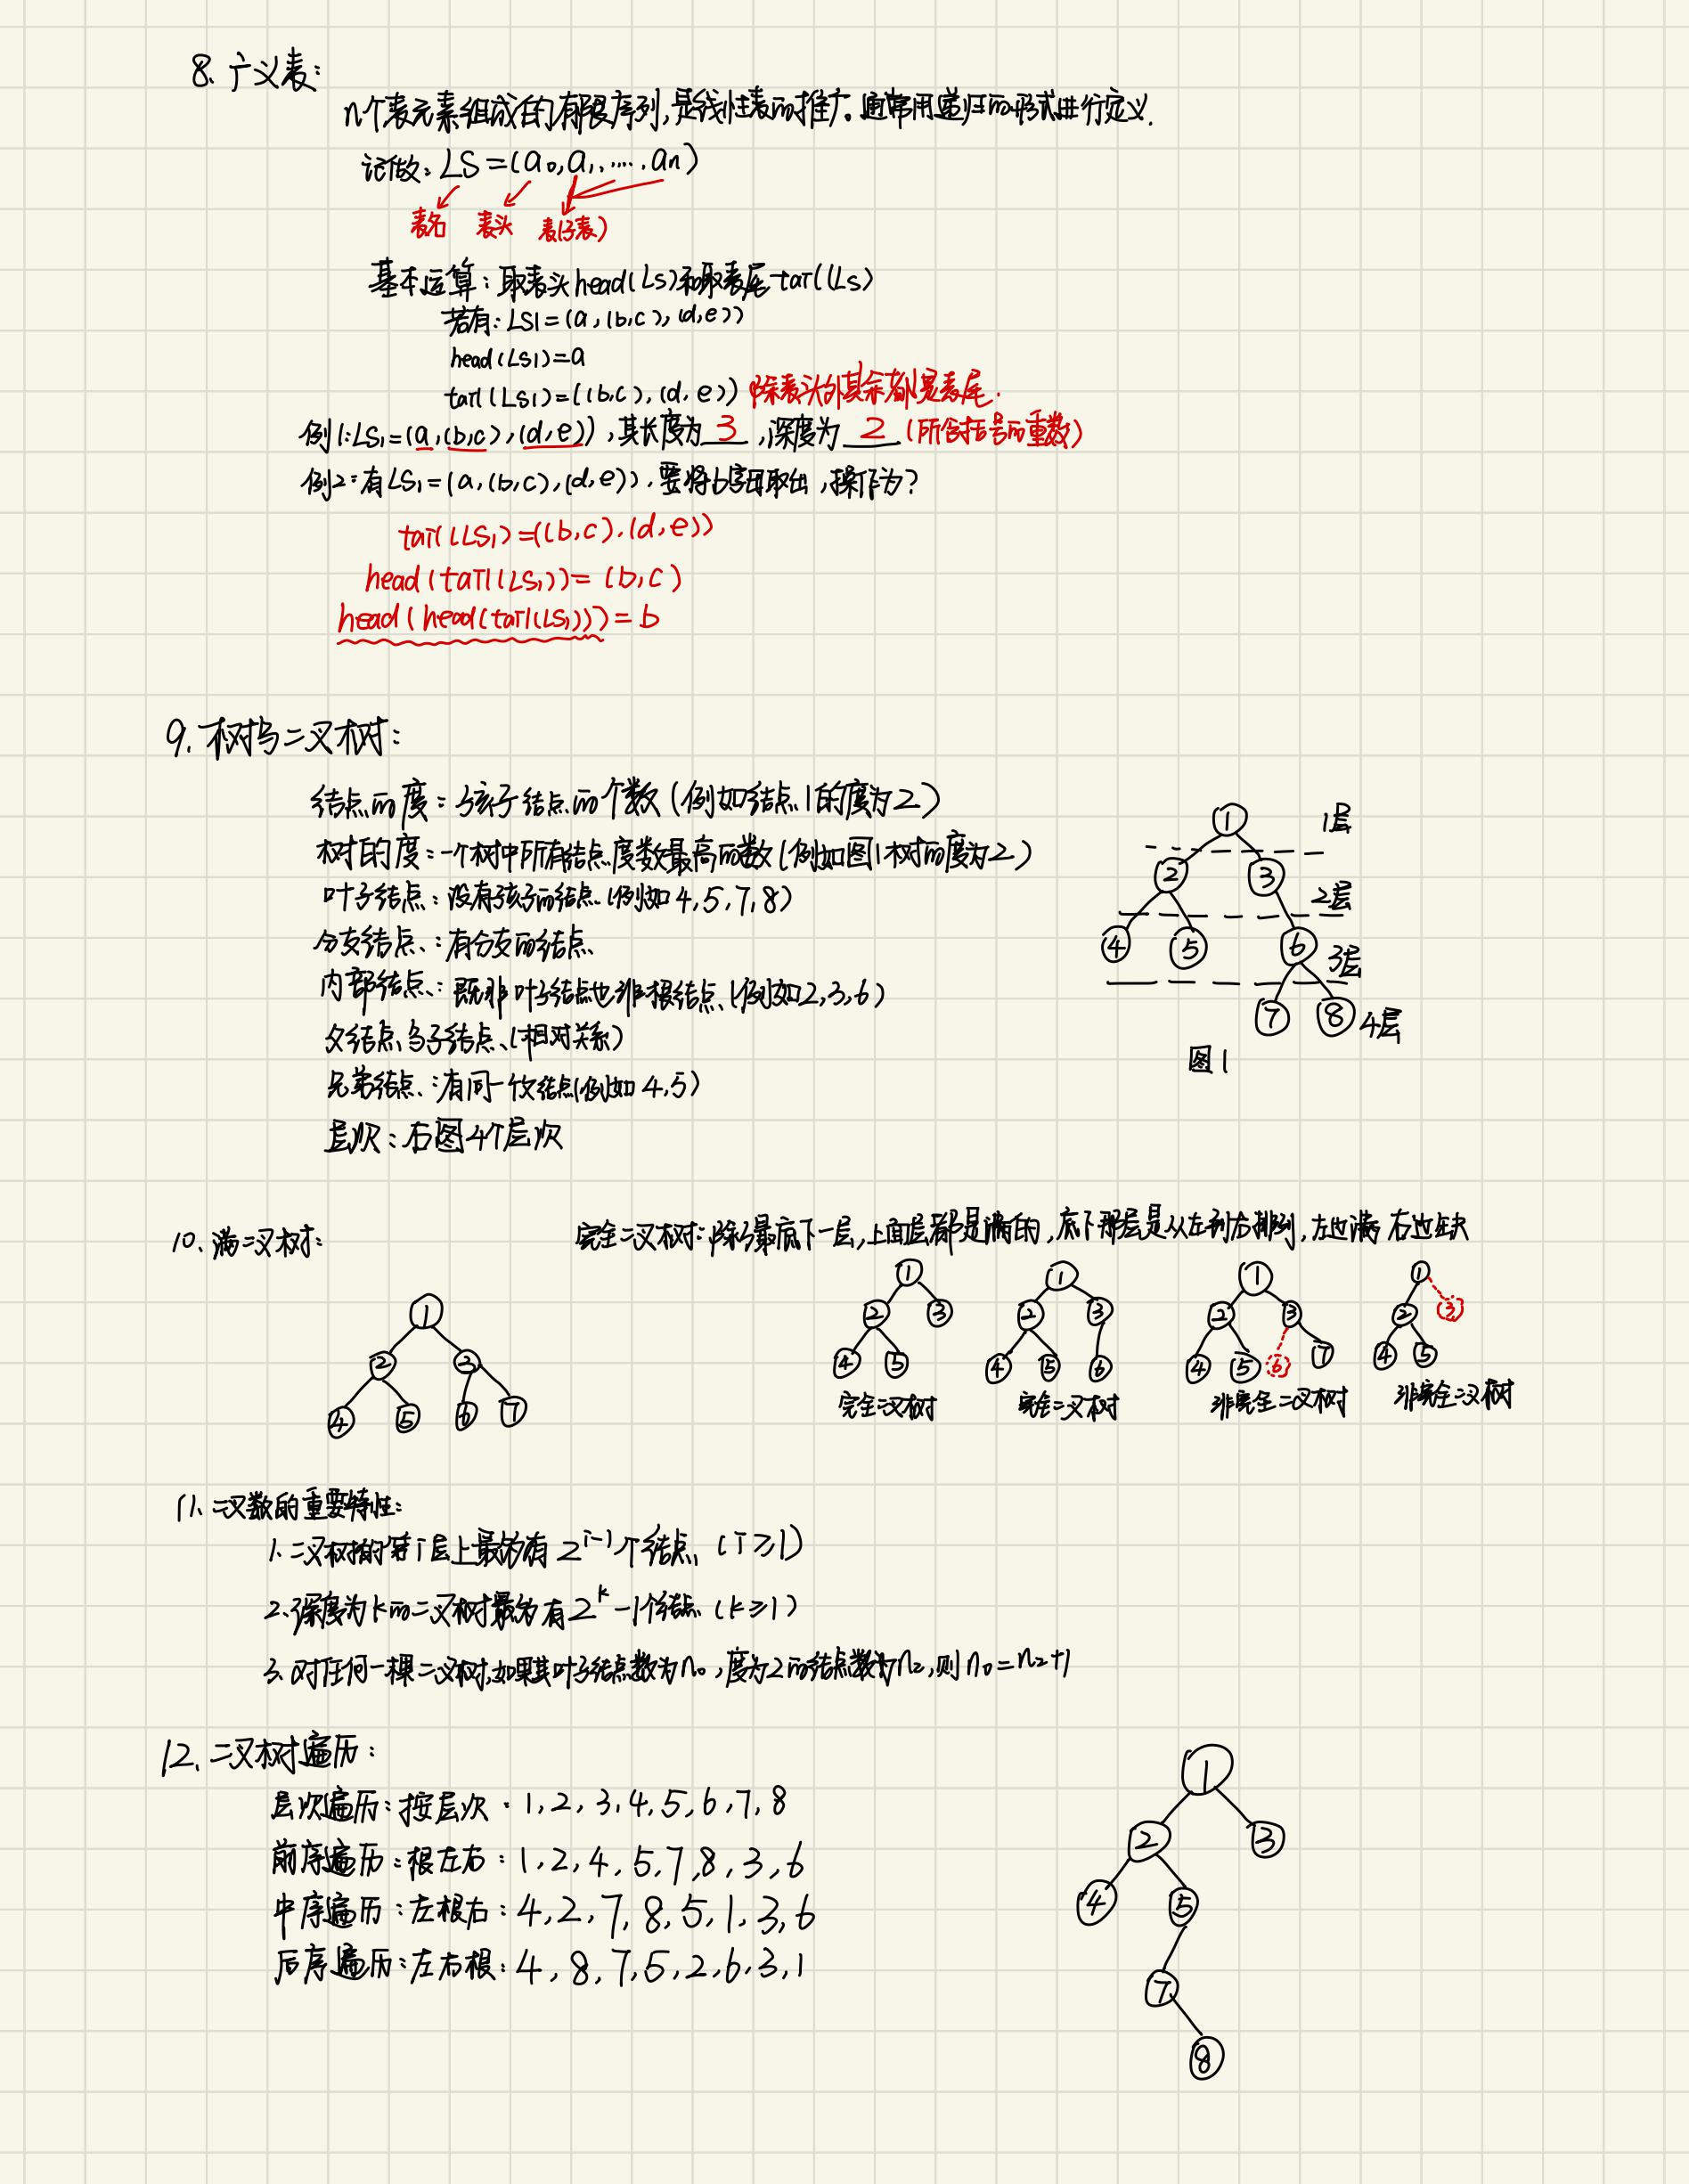 8、广义表:
n个表元素组成的有限序列,是线性表的推广。通常用递归的形式进行定义.
记做: LS=(a0,a1,....an)
表名 表头 表(子表)
基本运算: 取表头head(Ls)和取表尾tail(Ls)
若有: LS1=(a,(b,c),(d,e))
head(LS1)=a
tail(LS1)=((b,c),(d,e)) 除表头外其余都是表尾.
例1:LS1=(a,(b,c),(d,e)),其长度为 3 ,深度为 2 (所含括号的重数)
例2:有LS1=(a,(b,c),(d,e)).要将b字母取出,操作为?
tail(LS1)=((b,c).(d,e))
head(tail(LS1))=(b,c)
head(head(tail(LS1)))=b
9.树与二叉树:
结点的度: 孩子结点的个数(例如结点1的度为2)
树的度:一个树中所有结点度数最高的数(例如图1树的度为2)
叶子结点:没有孩子的结点(例如4,5,7,8)
分支结点:有分支的结点
内部结点:既非叶子结点也非根结点(例如2,3,6)
父结点与子结点(相对关系)
兄弟结点:有同一个父结点(例如4,5)
层次:右图4个层次
1 1层
2 3 2层
4 5 6 3层
7 8 4层
图1
10、满二叉树: 完全二叉树:除了最底下一层,上面层都是满的,底下那层是从左到右排列,左边满 右边缺
1
2 3
4 5 6 7
1
2 3
4 5
完全二叉树
1
2 3
4 5 6
完全二叉树
1
2 3
4 5 6 7
非完全二叉树
1
2 3
4 5
非完全二叉树
11、二叉数的重要特性:
1、二叉树的第i层上最多有2^(i-1)个结点(i≥1)
2、深度为k的二叉树最多有2^k-1个结点(k≥1)
3、对任何一棵二叉树,如果其叶子结点数为n0,度为2的结点数为n2,则n0=n2+1
12、二叉树遍历:
层次遍历:按层次:1,2,3,4,5,6,7,8
前序遍历:根左右:1,2,4,5,7,8,3,6
中序遍历:左根右:4,2,7,8,5,1,3,6
后序遍历:左右根:4,8,7,5,2,6,3,1
1
2 3
4 5
7
8